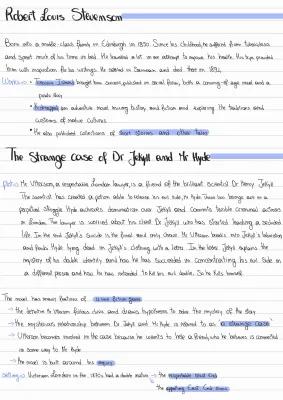 Robert Louis Stevenson
Born into a middle-class family in Edinburgh in 1850. Since his childhood, he suffered from tuberculosis
and spent much of his time in bed. He travelled a lot in an attempt to improve his health. His trips provided
him with inspiration for his writings. He settled in Samoa and died there in 1894
Works: • Treasure Island brought him success, published in serial form, both a coming of age novel and a
pirate story
• Kidnapped an adventure novel mixing history and fiction and exploring the traditions and
customs of native cultures
• He also published collections of short stories and other tales
The Strange case of Dr Jekyll and Mr Hyde
plot: Mr Utterson, a respectable London lawyer, is a friend of the brilliant scientist Dr Henry Jekyll.
The scientist has created a potion able to release his evil side, Mr Hyde. These two beings are in a
perpetual struggle. Hyde achieves domination over Jekyll and commits terrible criminal actions
in London. The lawyer is worried about his client Dr Jekyll who has started leading a secluded
life. In the end Jekyll's suicide is the final and only choice. Mr Utterson breaks into Jekyll's laboratory
and finds Hyde lying dead in Jekyll's clothing with a letter. In the letter Jekyll explains the
mystery of his double identity and how he has succeeded in concentrating his evil side in
a different person and how he has intended to kill his evil double. So he kills himself
The novel has many features of crime fiction genre
→ the detective Mr Utterson follows clues and draws hypotheses to solve the mystery of the story
→ the mysterious relationship between Dr Jekyll and Mr Hyde is referred to as a strange case
→ Utterson becomes involved in the case because he wants to help a friend, who he believes is connected
in some way to Mr Hyde
→ the novel is built around his inquiry
setting: Victorian London in the 1870s had a double nature → the respectable West End
→ the appalling East End slums